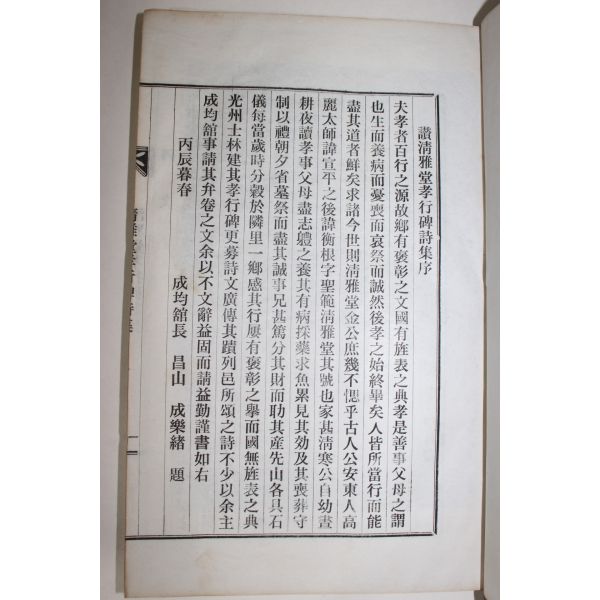 讚淸雅堂孝行碑詩集序
夫孝者百行之源故鄕有褒彰之文國有旌表之典孝是善事父母之謂
也生而養病而憂喪而哀祭而誠然後孝之始終畢矣人皆所當行而能
盡其道者鮮矣求諸今世則淸雅堂金公庶幾不愢乎古人公安東人高
麗太師諱宣平之後諱衡根字聖範淸雅堂其號也家甚淸寒公自幼晝
耕夜讀孝事父母盡志軆之養其有病採藥求魚累見其効及其喪葬守
制以禮朝夕省墓祭而盡其誠事兄甚篤分其財而助其産先山各具石
儀每當歲時分穀於隣里一鄕感其行屢有褒彰之擧而國無旌表之典
光州士林建其孝行碑更募詩文廣傳其蹟列邑所頌之詩不少以余主
成均舘事請其弁卷之文余以不文辭益固而請益勤謹書如右
丙辰暮春
成均舘長 昌山 成樂緖 題